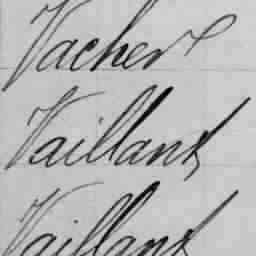 Vacher
Vaillant
Vaillant